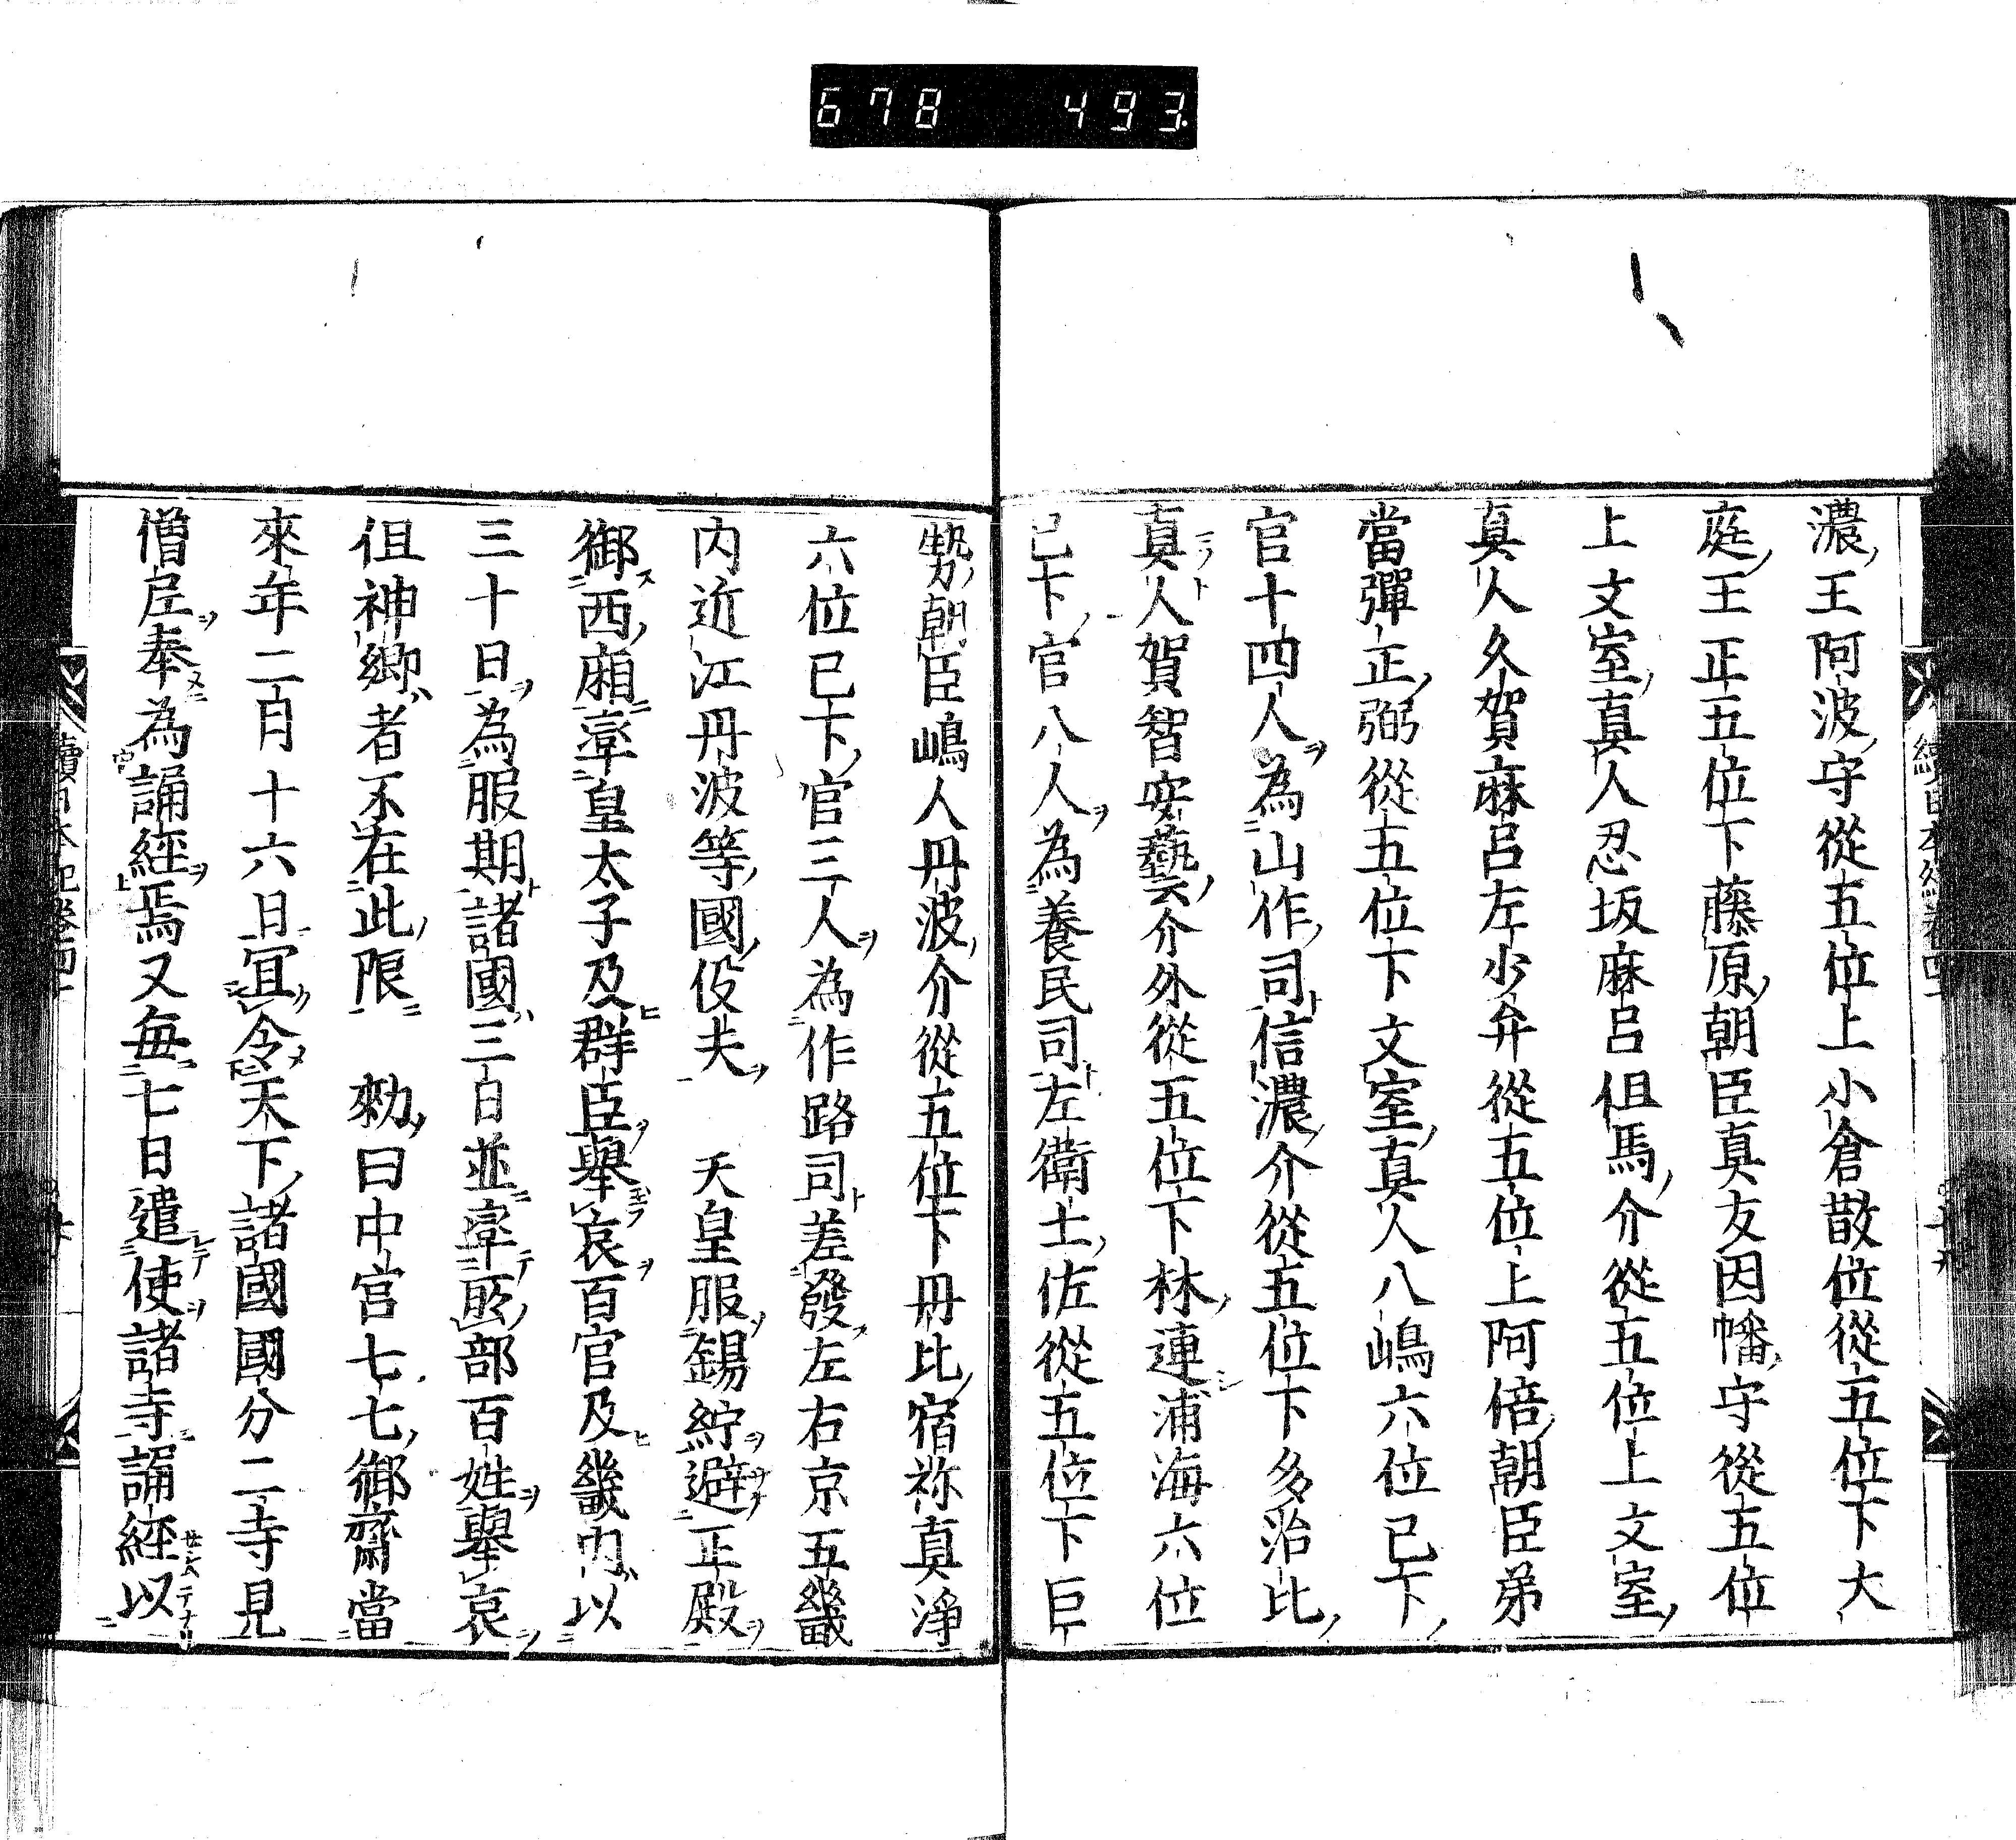 678 493
濃王阿波守從五位上小倉散位從五位下大
庭王正五位下藤原朝臣真友因幡守從五位
上文室真人忍坂麻呂但馬介從五位上文室
真人久賀麻呂左少弁從五位上阿倍朝臣弟
當彈正弼從五位下文室真人八嶋六位已下
官十四人ヲ為山作司ト信濃介從五位下多治比
真人賀智安藝介外從五位下林連浦海六位
已下官八人ヲ為養民司ト左衛士佐從五位下巨
勢朝臣嶋人丹波介從五位下丹比宿祢真淨
六位已下官三人ヲ為作路司ト差發左右京五畿
内近江丹波等國役夫 天皇服錫紵避正殿
御西廂率皇太子及群臣舉哀百官及畿内以
三十日為服期諸國三日並率所部百姓舉哀
但神郷者不在此限 勑曰中宮七七御齋當
來年二月十六日宜令天下諸國國分二寺見
僧尼奉為誦經焉又毎七日遣使諸寺誦經以